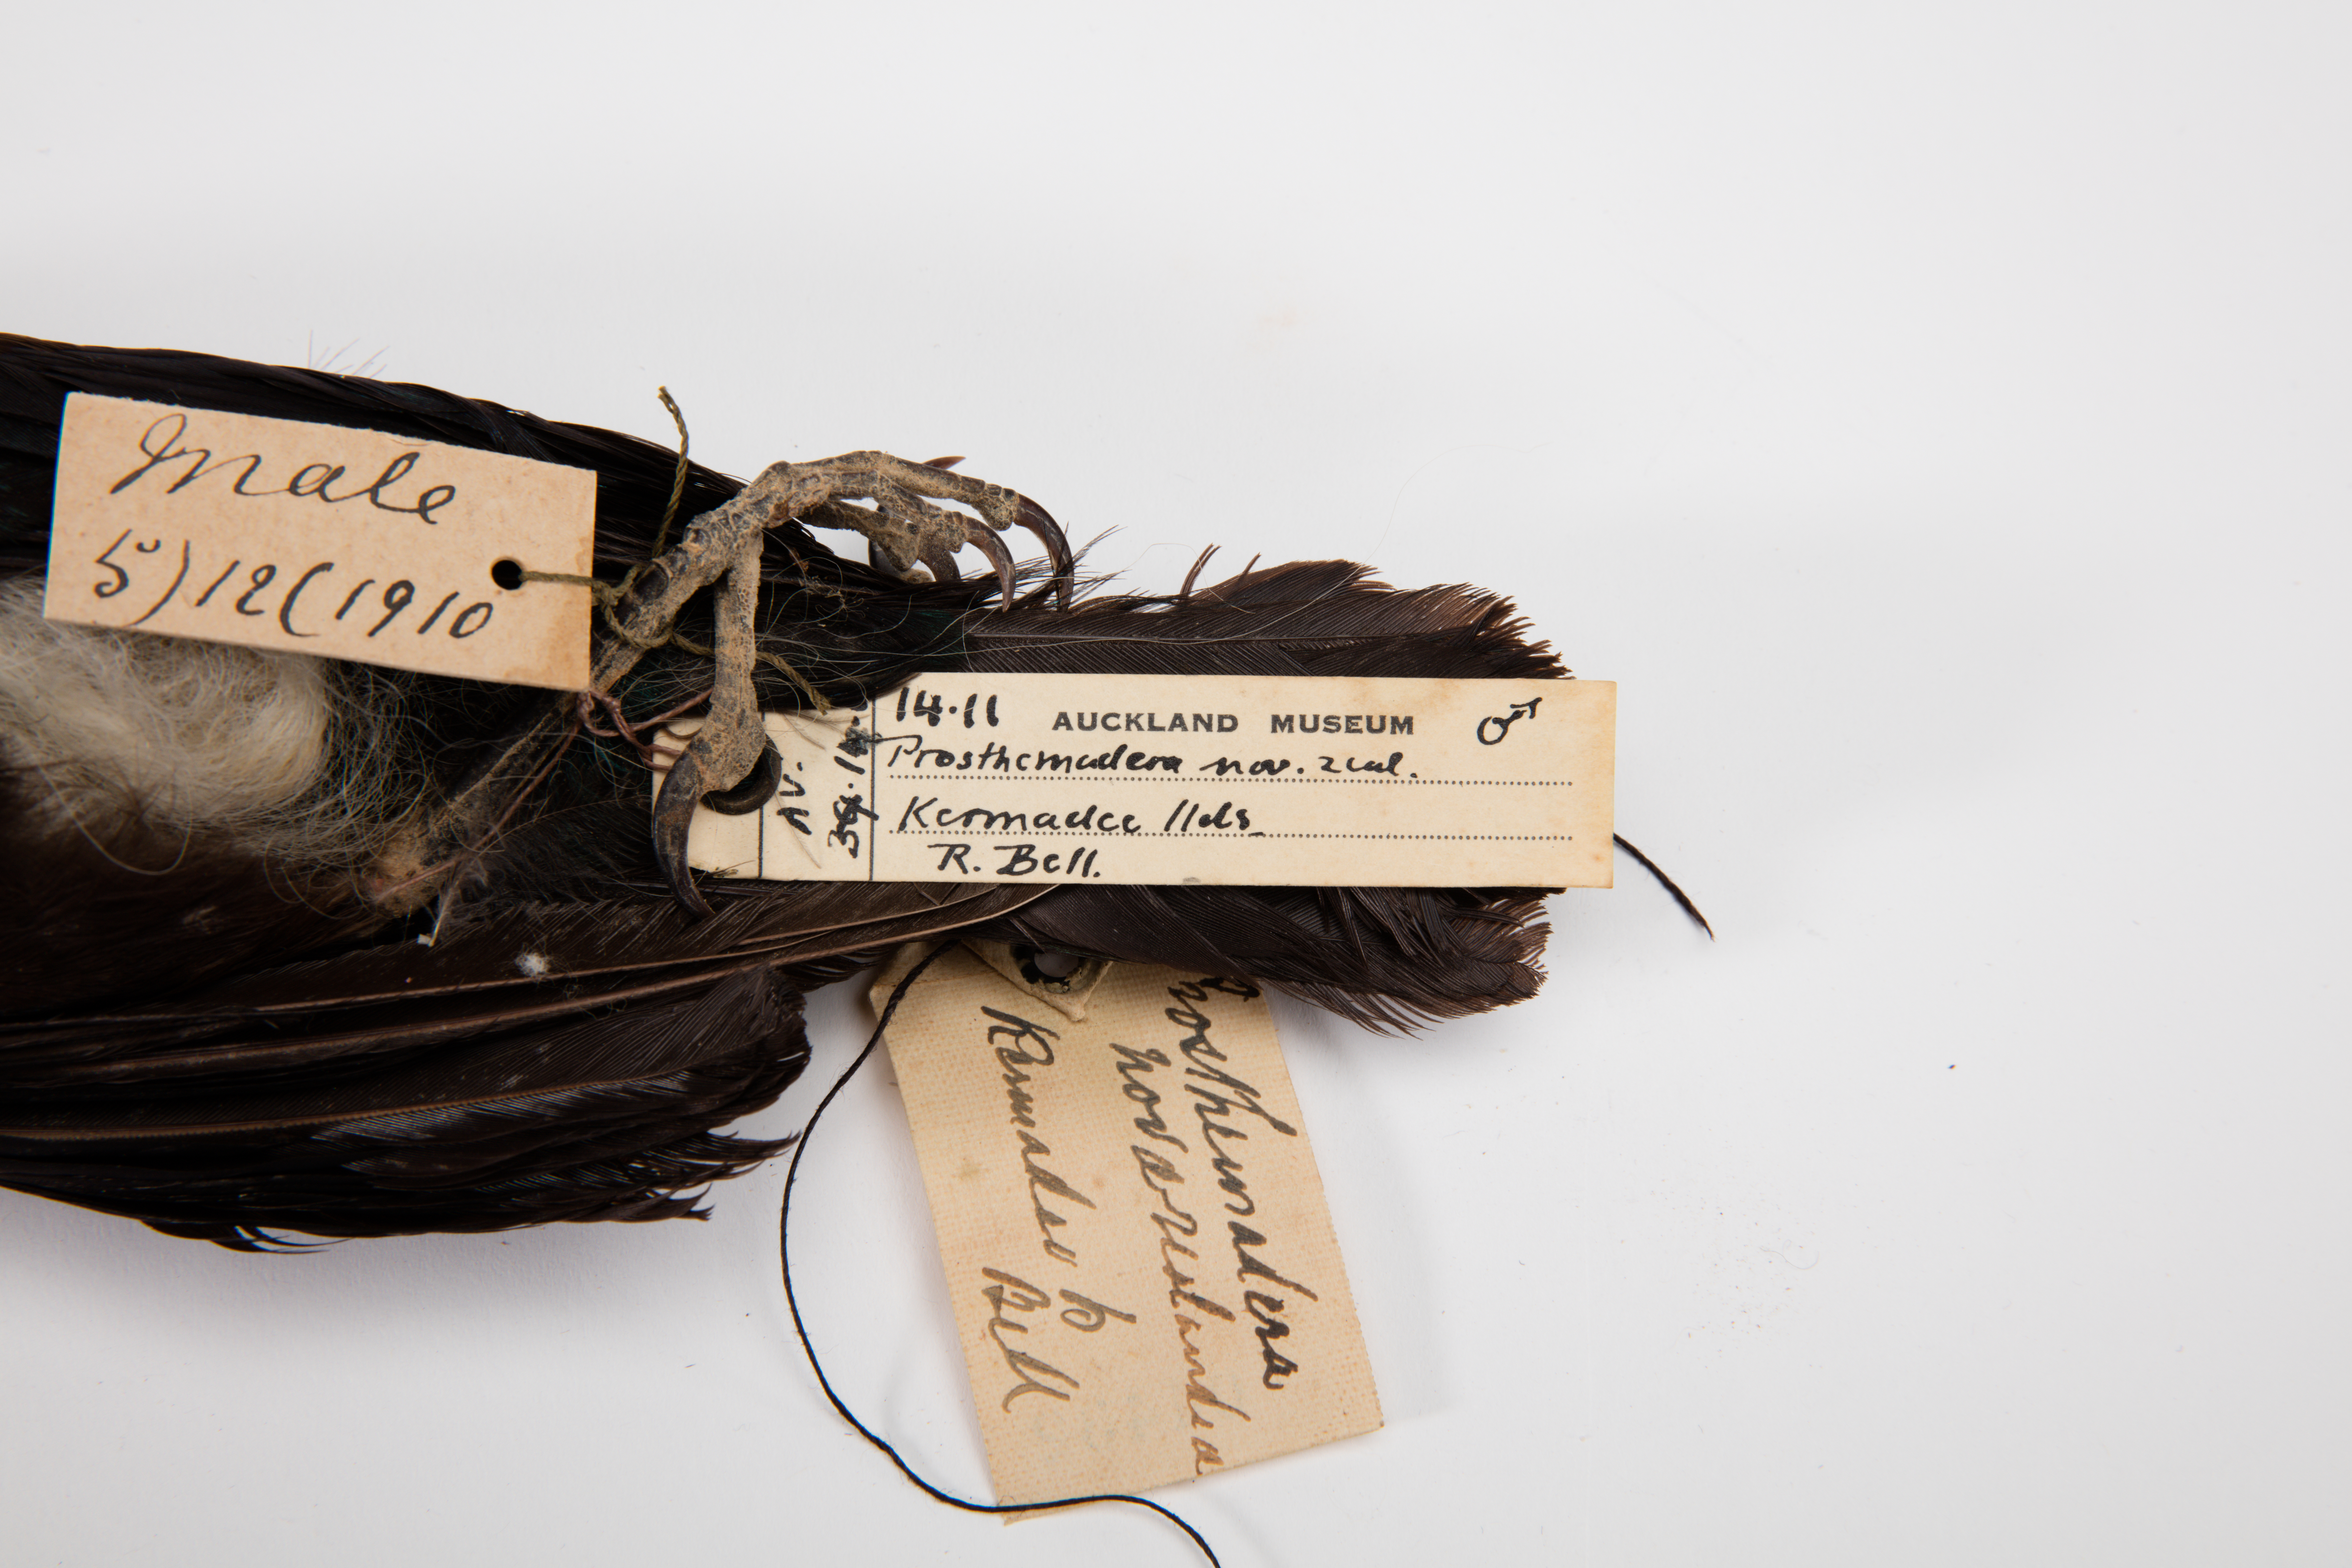 Male
5)12(1910
14.11 AUCKLAND MUSEUM ♂
Prosthemadera nov. zeal.
Kermadec Ilds
R. Bell.
AV.
Prosthemadera
novaezealandea
Kermadec Is
Bell